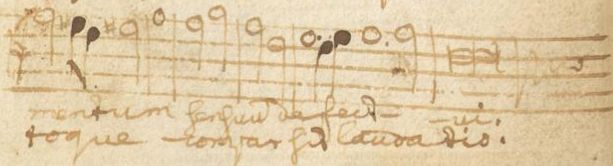 mentum sensuũ defect- -ui.
toque -compar sit laudatio.